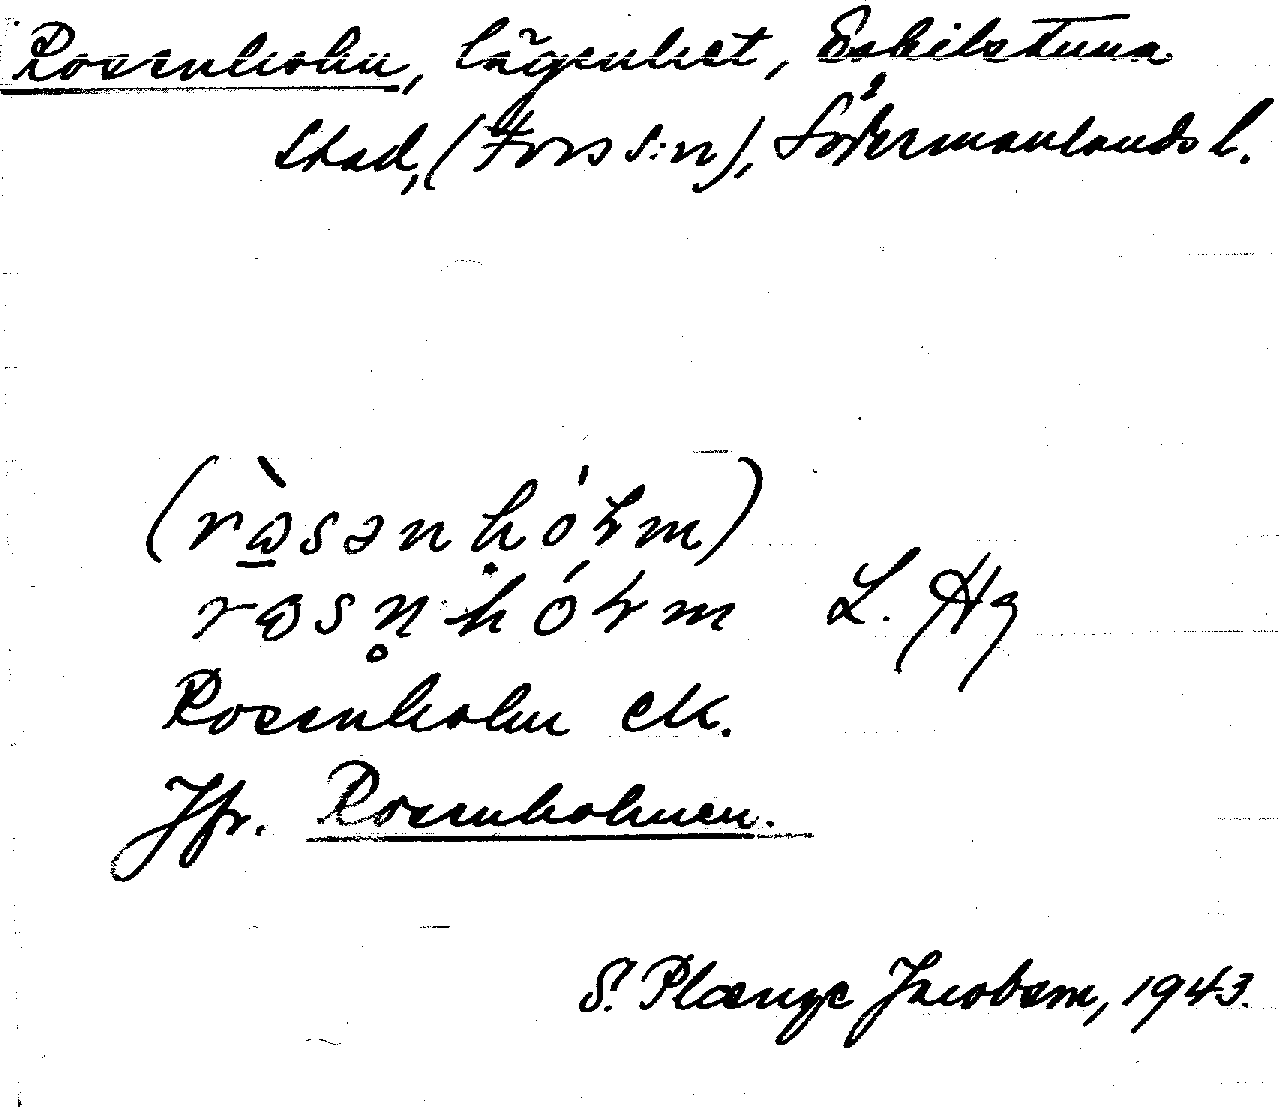 Rosenholm, lägenhet, Eskilstuna
stad, (Fors s:n), Södermanlands l.
(ròsənhólm)
rosn̥hólm L. Hg
Rosenholm ek.
Jfr. Rosenholmen.
S. Plænge Jacobson, 1943.